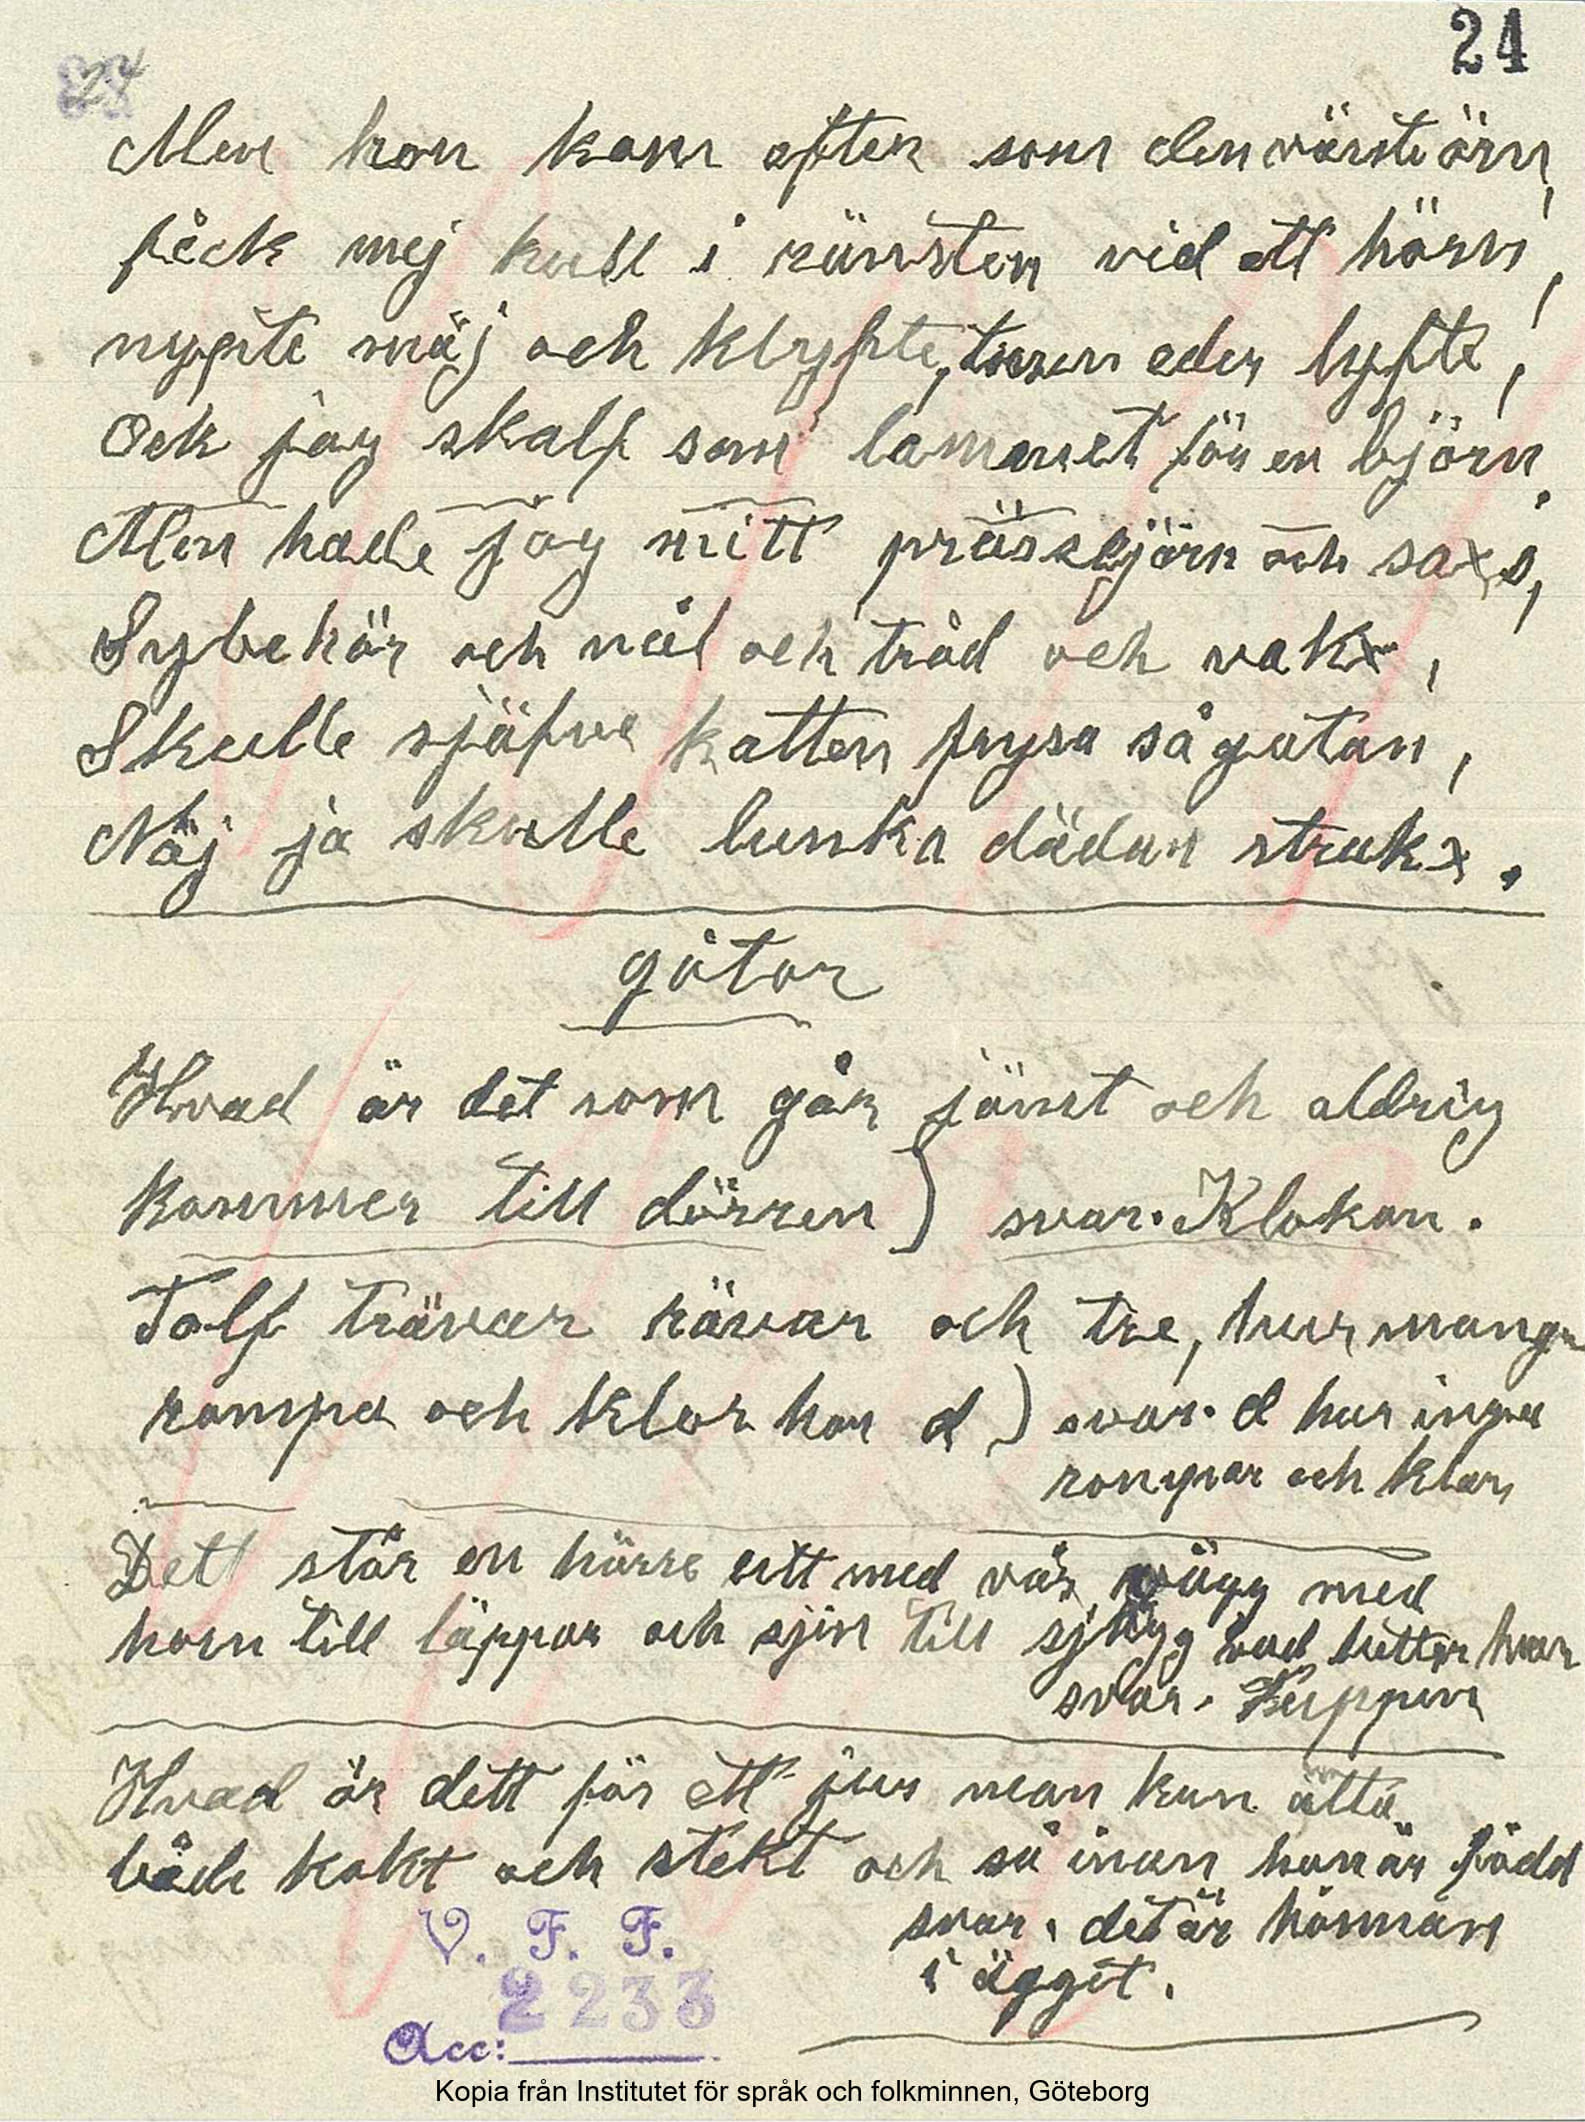 24
24
Men hon kom after som den värste örn,
fick mej kull i ränsten vid ett hörn,
nypte mäj och klypte, eder lyfte,
Ock jag skalf som lammet för en björn.
Men hade jag mitt prässejärn och saxs,
Sybehör och nål och tråd och vakx,
Skulle sjäfve katten frysa så gatan,
Näj ja skulle lunka dädan strakx.
gåtor
Hvad är det som går jämt och aldrig
kommer till dörren) svar. Klokan.
Tolf trävar rävar och tre, hur manga
rompa och klor har d) svar. d har inga
rompar och klor,
Dett står en härre utt med vår vägg med
horn till läppar och sjin till sjägg vad hetter han
svar. Tuppen
Hvad är dett för ett jur man kan ätta
både kokt och stekt och så inan han är född
svar. det är hönnan
i ägget.
V. F. F.
2233
Acc:
Kopia från Institutet för språk och folkminnen, Göteborg